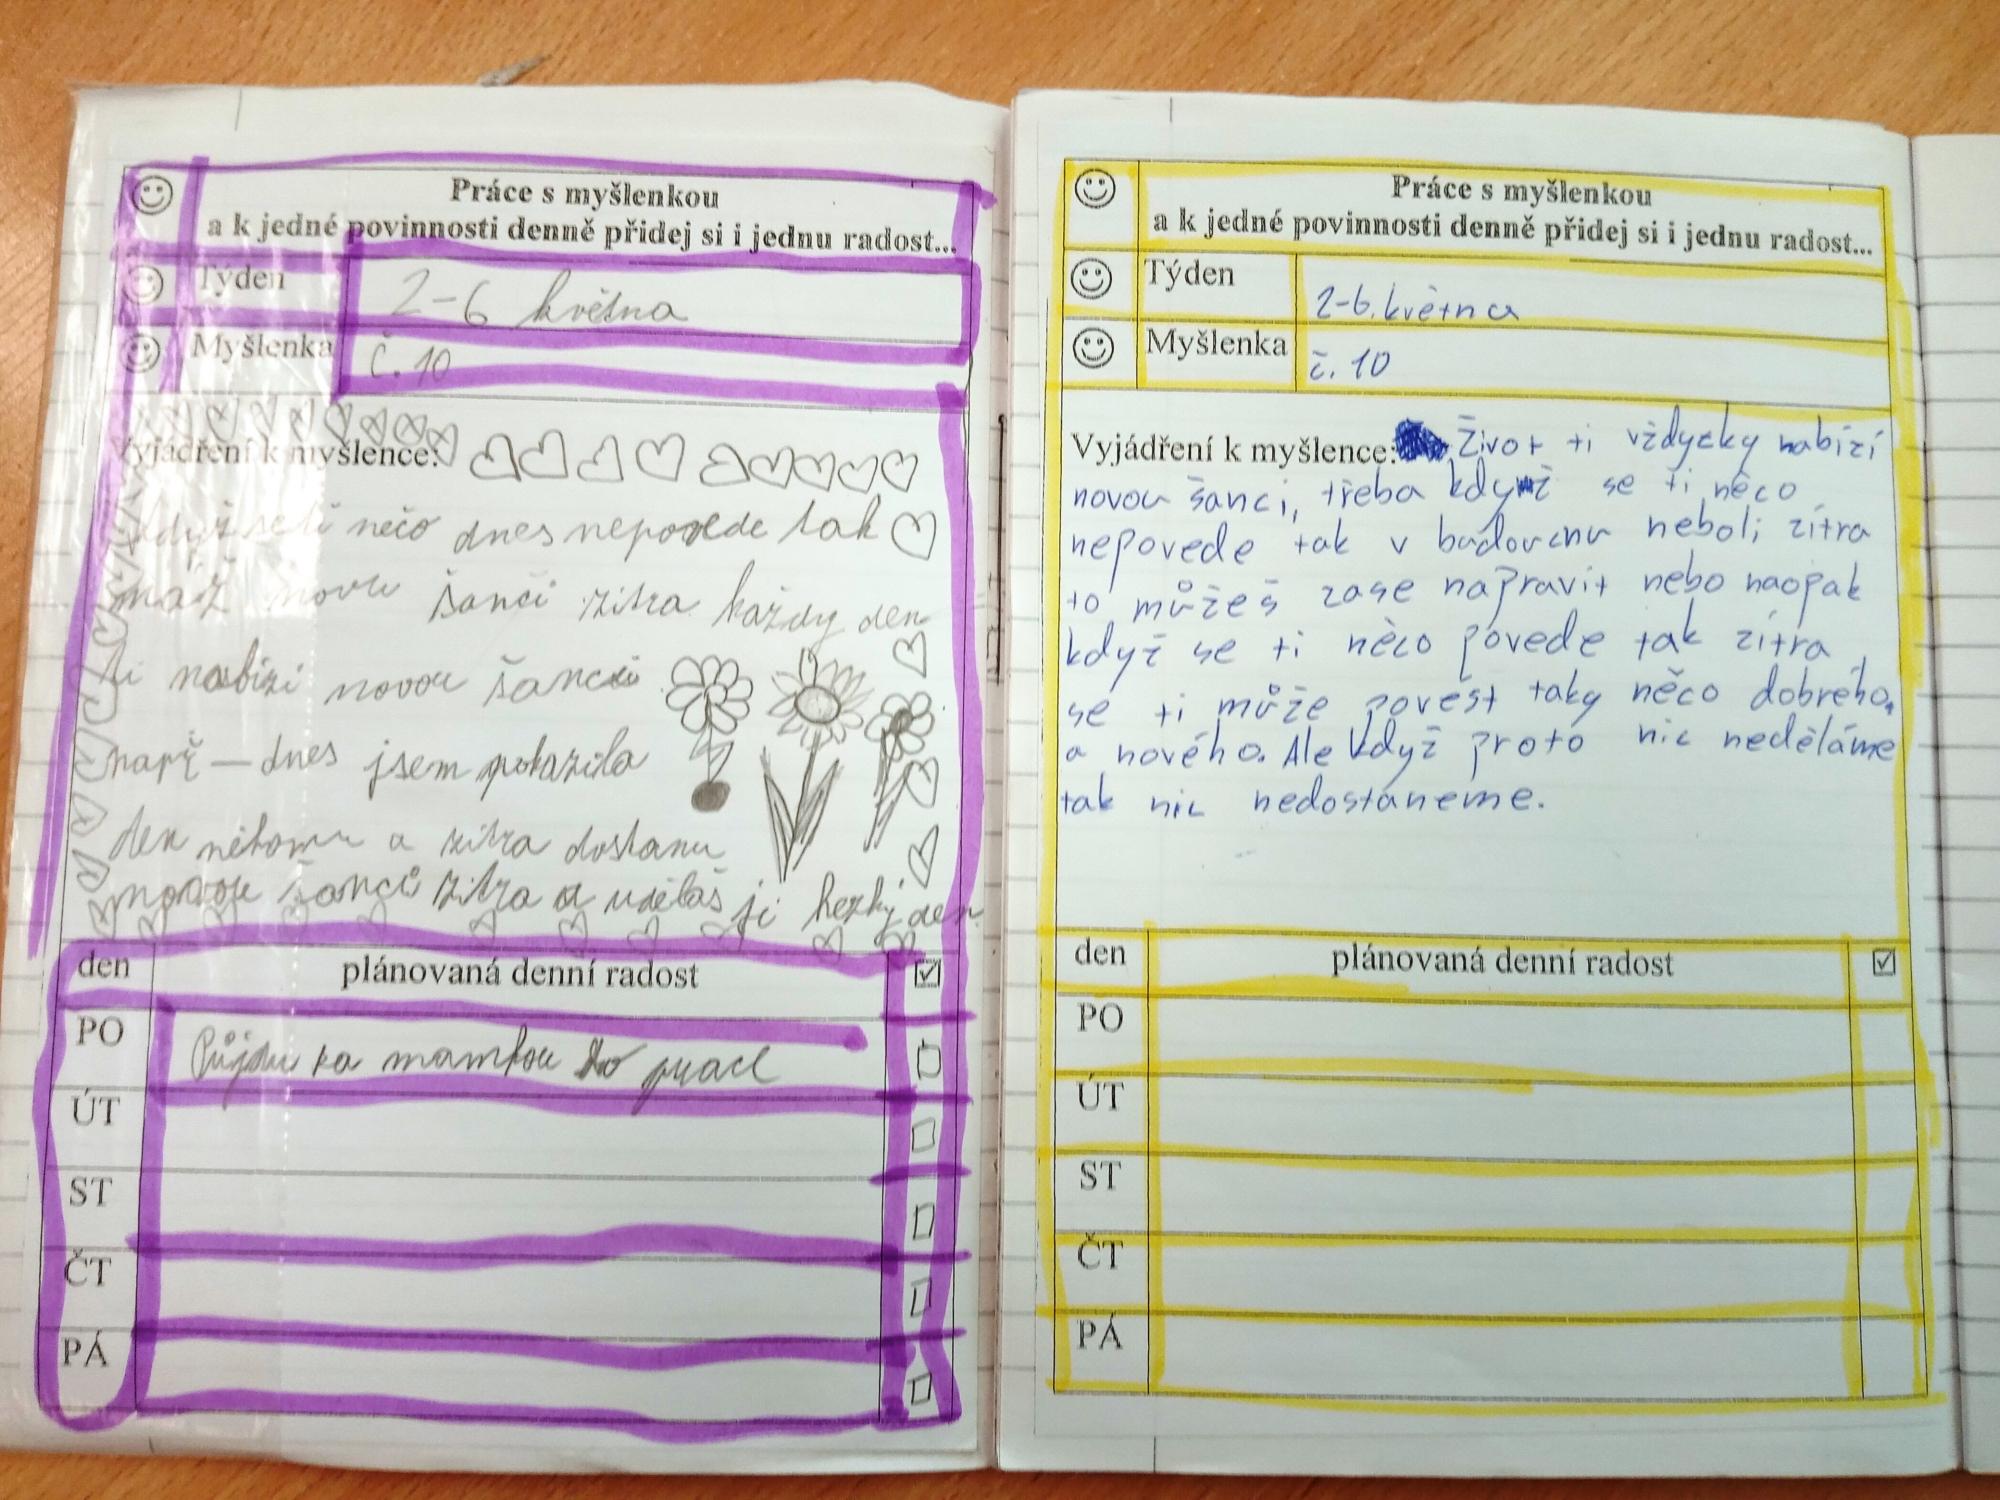 Práce s myšlenkou
a k jedné povinnosti denně přidej si i jednu radost...
Týden
2-6 května
Myšlenka
č. 10
Vyjádření k myšlence:
když se ti něčo dnes nepovede tak
máž novou šanci zitra každy den
ti nabizi novou šanci
např - dnes jsem pokazila
den někomu a zitra dostanu
novou šanci zitra a uděláš ji hezký den
den plánovaná denní radost
PO Půjdu za mamkou do prace
ÚT
ST
ČT
PÁ
Práce s myšlenkou
a k jedné povinnosti denně přidej si i jednu radost...
Týden
2-6. května
Myšlenka
č. 10
Vyjádření k myšlence: Život ti vždycky nabízí
novou šanci, třeba když se ti něco
nepovede tak v budoucnu neboli zítra
to můžeš zase napravit nebo naopak
když se ti něco povede tak zítra
se ti může povést taky něco dobrého,
a nového. Ale když proto nic neděláme
tak nic nedostaneme.
den plánovaná denní radost
PO
ÚT
ST
ČT
PÁ